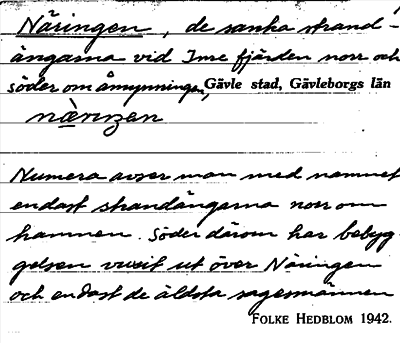 Näringen, de sanka strand-
ängarna vid Inre fjärden norr och
söder om åmynningen, Gävle stad, Gävleborgs län
nær̀ıŋen
Numera avser man med namnet
endast strandängarna norr om
hamnen. Söder därom har bebyg-
gelsen vuxit ut över Näringen
och endast de äldsta sagesmännen
FOLKE HEDBLOM 1942.